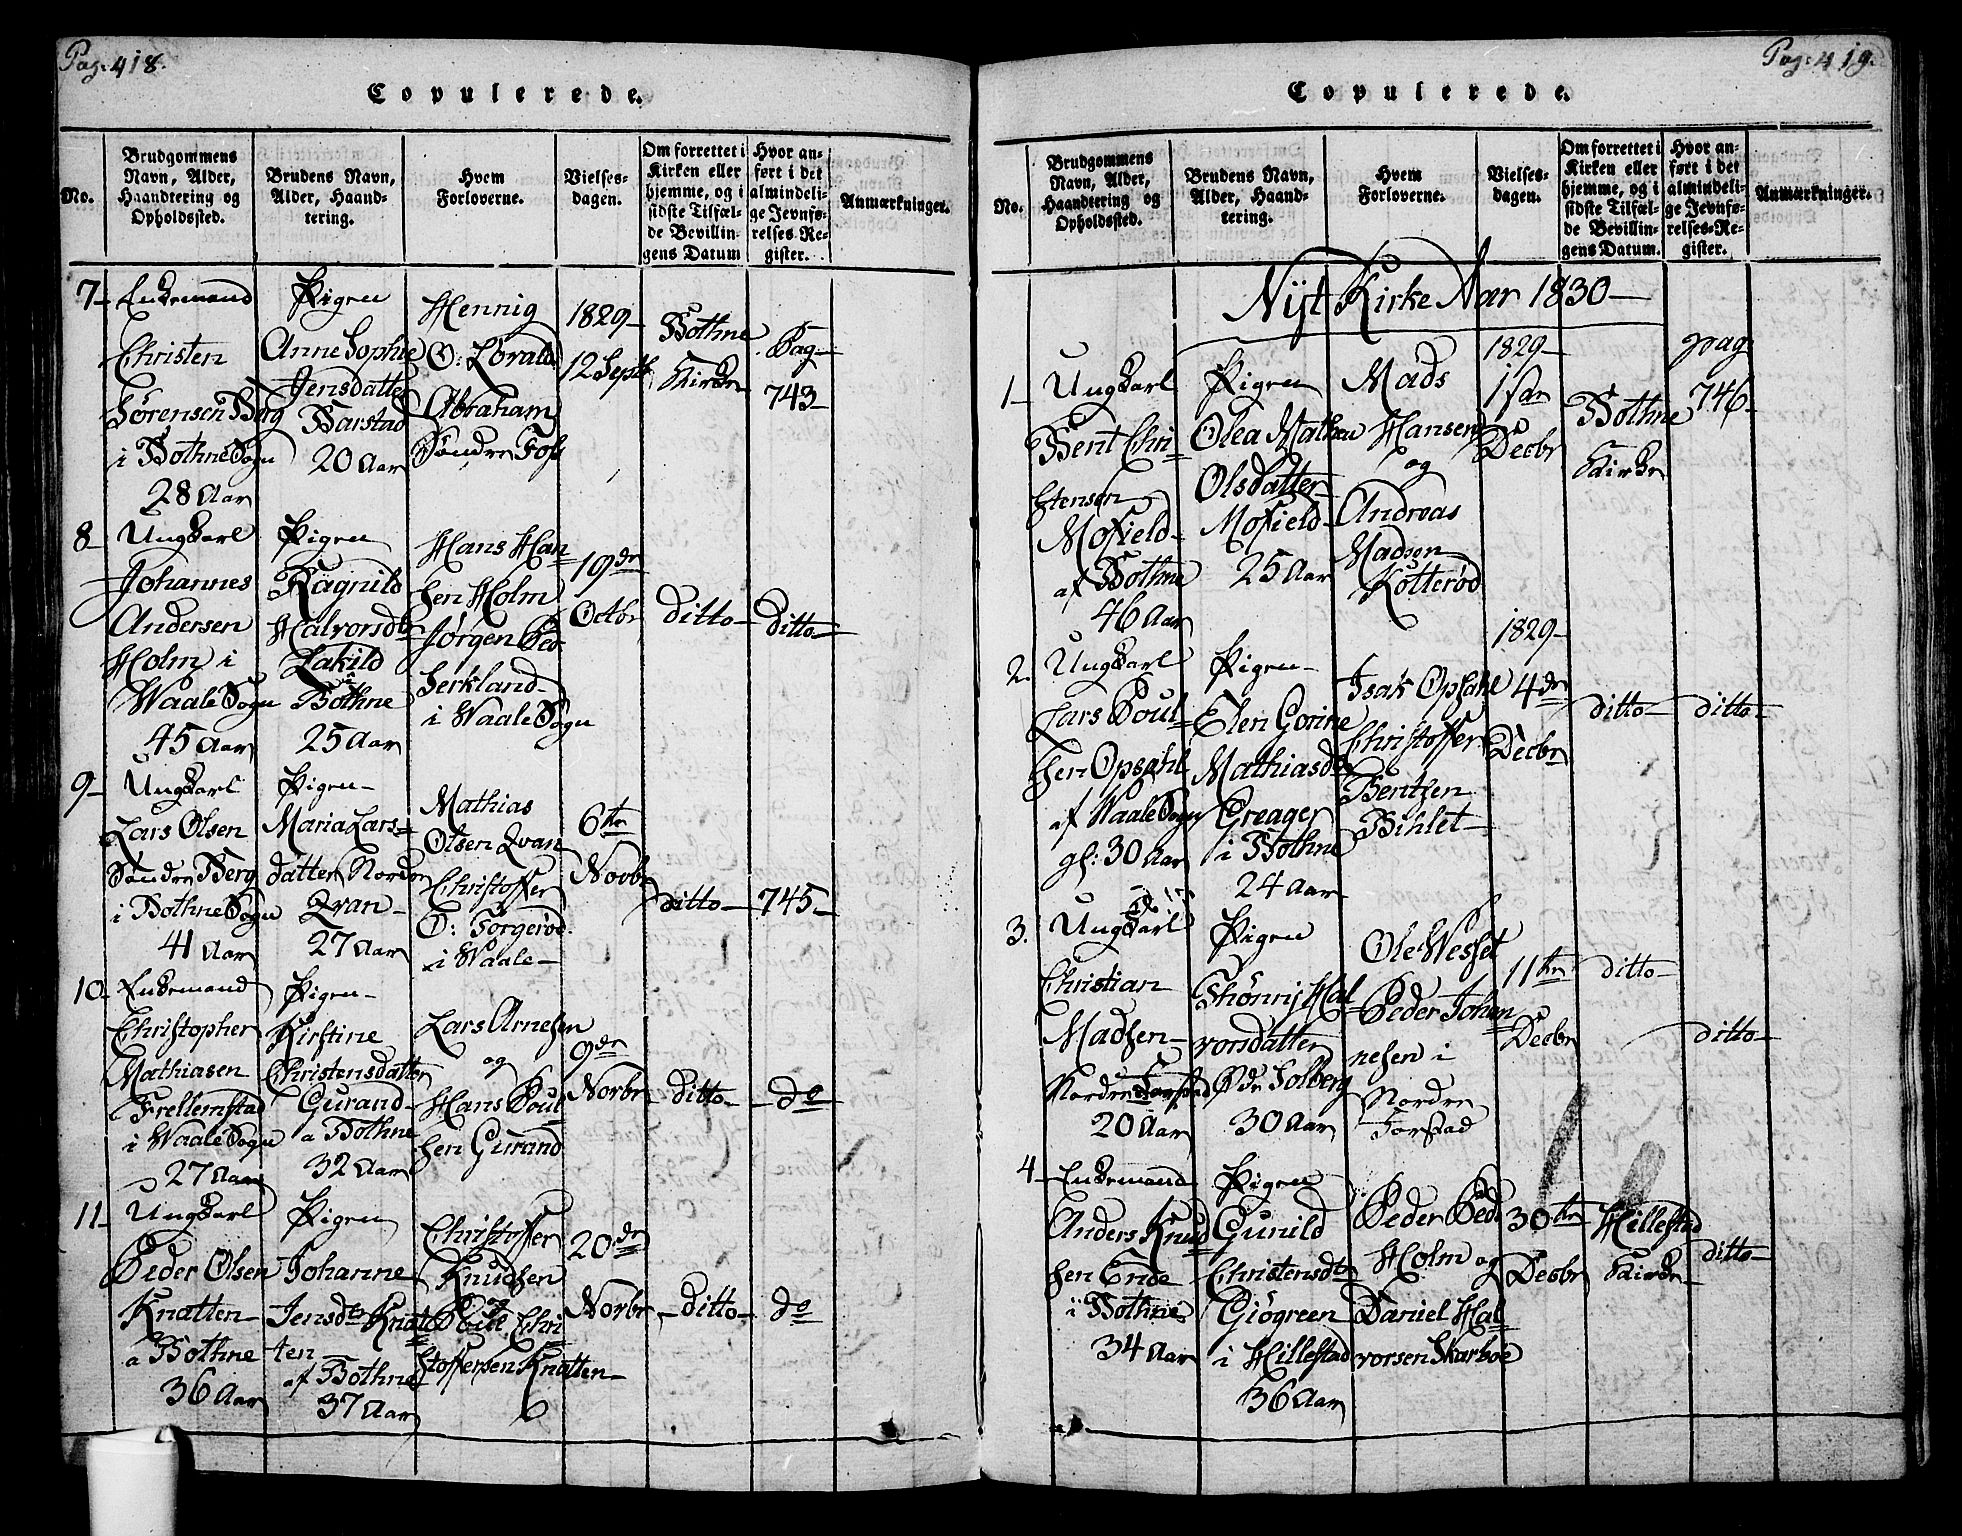 Pag: 418.
Copulerede.
No.
Brudgommens
Navn, Alder,
Haandtering og
Opholdssted.
Brudens Navn,
Alder, Haand-
tering.
Hvem
Forloverne.
Vielses-
dagen.
Om forrettet i
Kirken eller
hjemme, og i
sidste Tilfæl-
de Bevillin-
gens Datum
Hvor an-
ført i det
almindeli-
ge Jevnfø-
relses-Re-
gister.
Anmærkninger.
7-
Enkemand
Christen
Sørensen Berg
i Bothne Sogn
28 Aar
Pigen
Anne Sophie
Jensdatter
Barstad
20 Aar
Hennig
O: Løvald
Abraham
Søndre Fos
1829-
12 Septb
Bothne
Kirke
Pag-
743-
8-
Ungkarl
Johannes
Andersen
Holm i
Waale Sogn
45 Aar
Pigen
Ragnild
Halvorsdtr
Lakild
a Bothne
25 Aar
Hans Han-
sen Holm
Jørgen Pe-
serkland-
i Waale Sogn
19de
Octbr
ditto-
ditto-
9-
Ungkarl
Lars Olsen
Søndre Berg
i Bothne Sogn
41 Aar
Pigen-
Maria Lars-
datter Nordre
Qvan-
27 Aar
Mathias
Olsen Qvan
Christoffer
O: Torgerød
i Waale-
6te
Novbr
ditto-
745-
10-
Enkemand
Christopher
Mathiasen
Frellemstad
i Waale Sogn
27 Aar
Pigen-
Kirstine
Christensdatter
Gurand-
a Bothne
32 Aar
Lars Arnesen
og
Hans Poul-
sen Gurand
9de
Novbr
Ditto-
do
11-
Ungkarl
Peder Olsen
Knatten-
a Bothne
36 Aar
Pigen
Johanne
Jensdtr Knat-
ten
af Bothne
37 Aar
Christoffer
Knudsen
og
Poul Chri-
stoffersen Knatten-
20de
Novbr
ditto-
do
Pag: 419.
Copulerede.
No.
Brudgommens
Navn, Alder,
Haandtering og
Opholdssted.
Brudens Navn,
Alder, Haand-
tering.
Hvem
Forloverne.
Vielses-
dagen.
Om forrettet i
Kirken eller
hjemme, og i
sidste Tilfæl-
de Bevillin-
gens Datum.
Hvor an-
ført i det
almindeli-
ge Jevnfø-
relses-Re-
gister.
Anmærkninger.
Nyt Kirke Aar 1830-
1-
Ungkarl
Bent Chri-
stensen
Mofield-
af Bothne
46 Aar
Pigen
Olea Mathea
Olsdatter
Mofield-
25 Aar
Mads
Hansen
og
Andreas
Madsen
Kotterød
1829-
1ste
Decbr
Bothne
Kirke
pag
746-
2.
Ungkarl
Lars Poul-
sen Opsahl
af Waale Sogn
gl: 30 Aar
Pigen-
Elen Gorine
Mathiasd
Greager
i Bothne
24 Aar
Isak Opsahl
Christoffer
Bentsen
Bihlet-
1829-
4de
Decbr
ditto-
ditto-
3.
Ungkarl
Christian
Madsen-
Nordre Forstad
20 Aar
Pigen
Thønrij Hal-
vorsdatter
Solberg
30 Aar
Ole Wesset
Peder Johan-
nesen i
Nordre
Forstad
11te
Decbr
ditto-
ditto-
4-
Enkemand
Anders Knud-
sen Ende
i Bothne
34 Aar
Pigen
Gunild
Christensdtr
Gjøgreen
i Hillestad
36 Aar
Peder Peders
Holm og
Daniel Hal-
vorsen Skarboe
30te
Decbr
Hillestad
Kirke-
ditto-